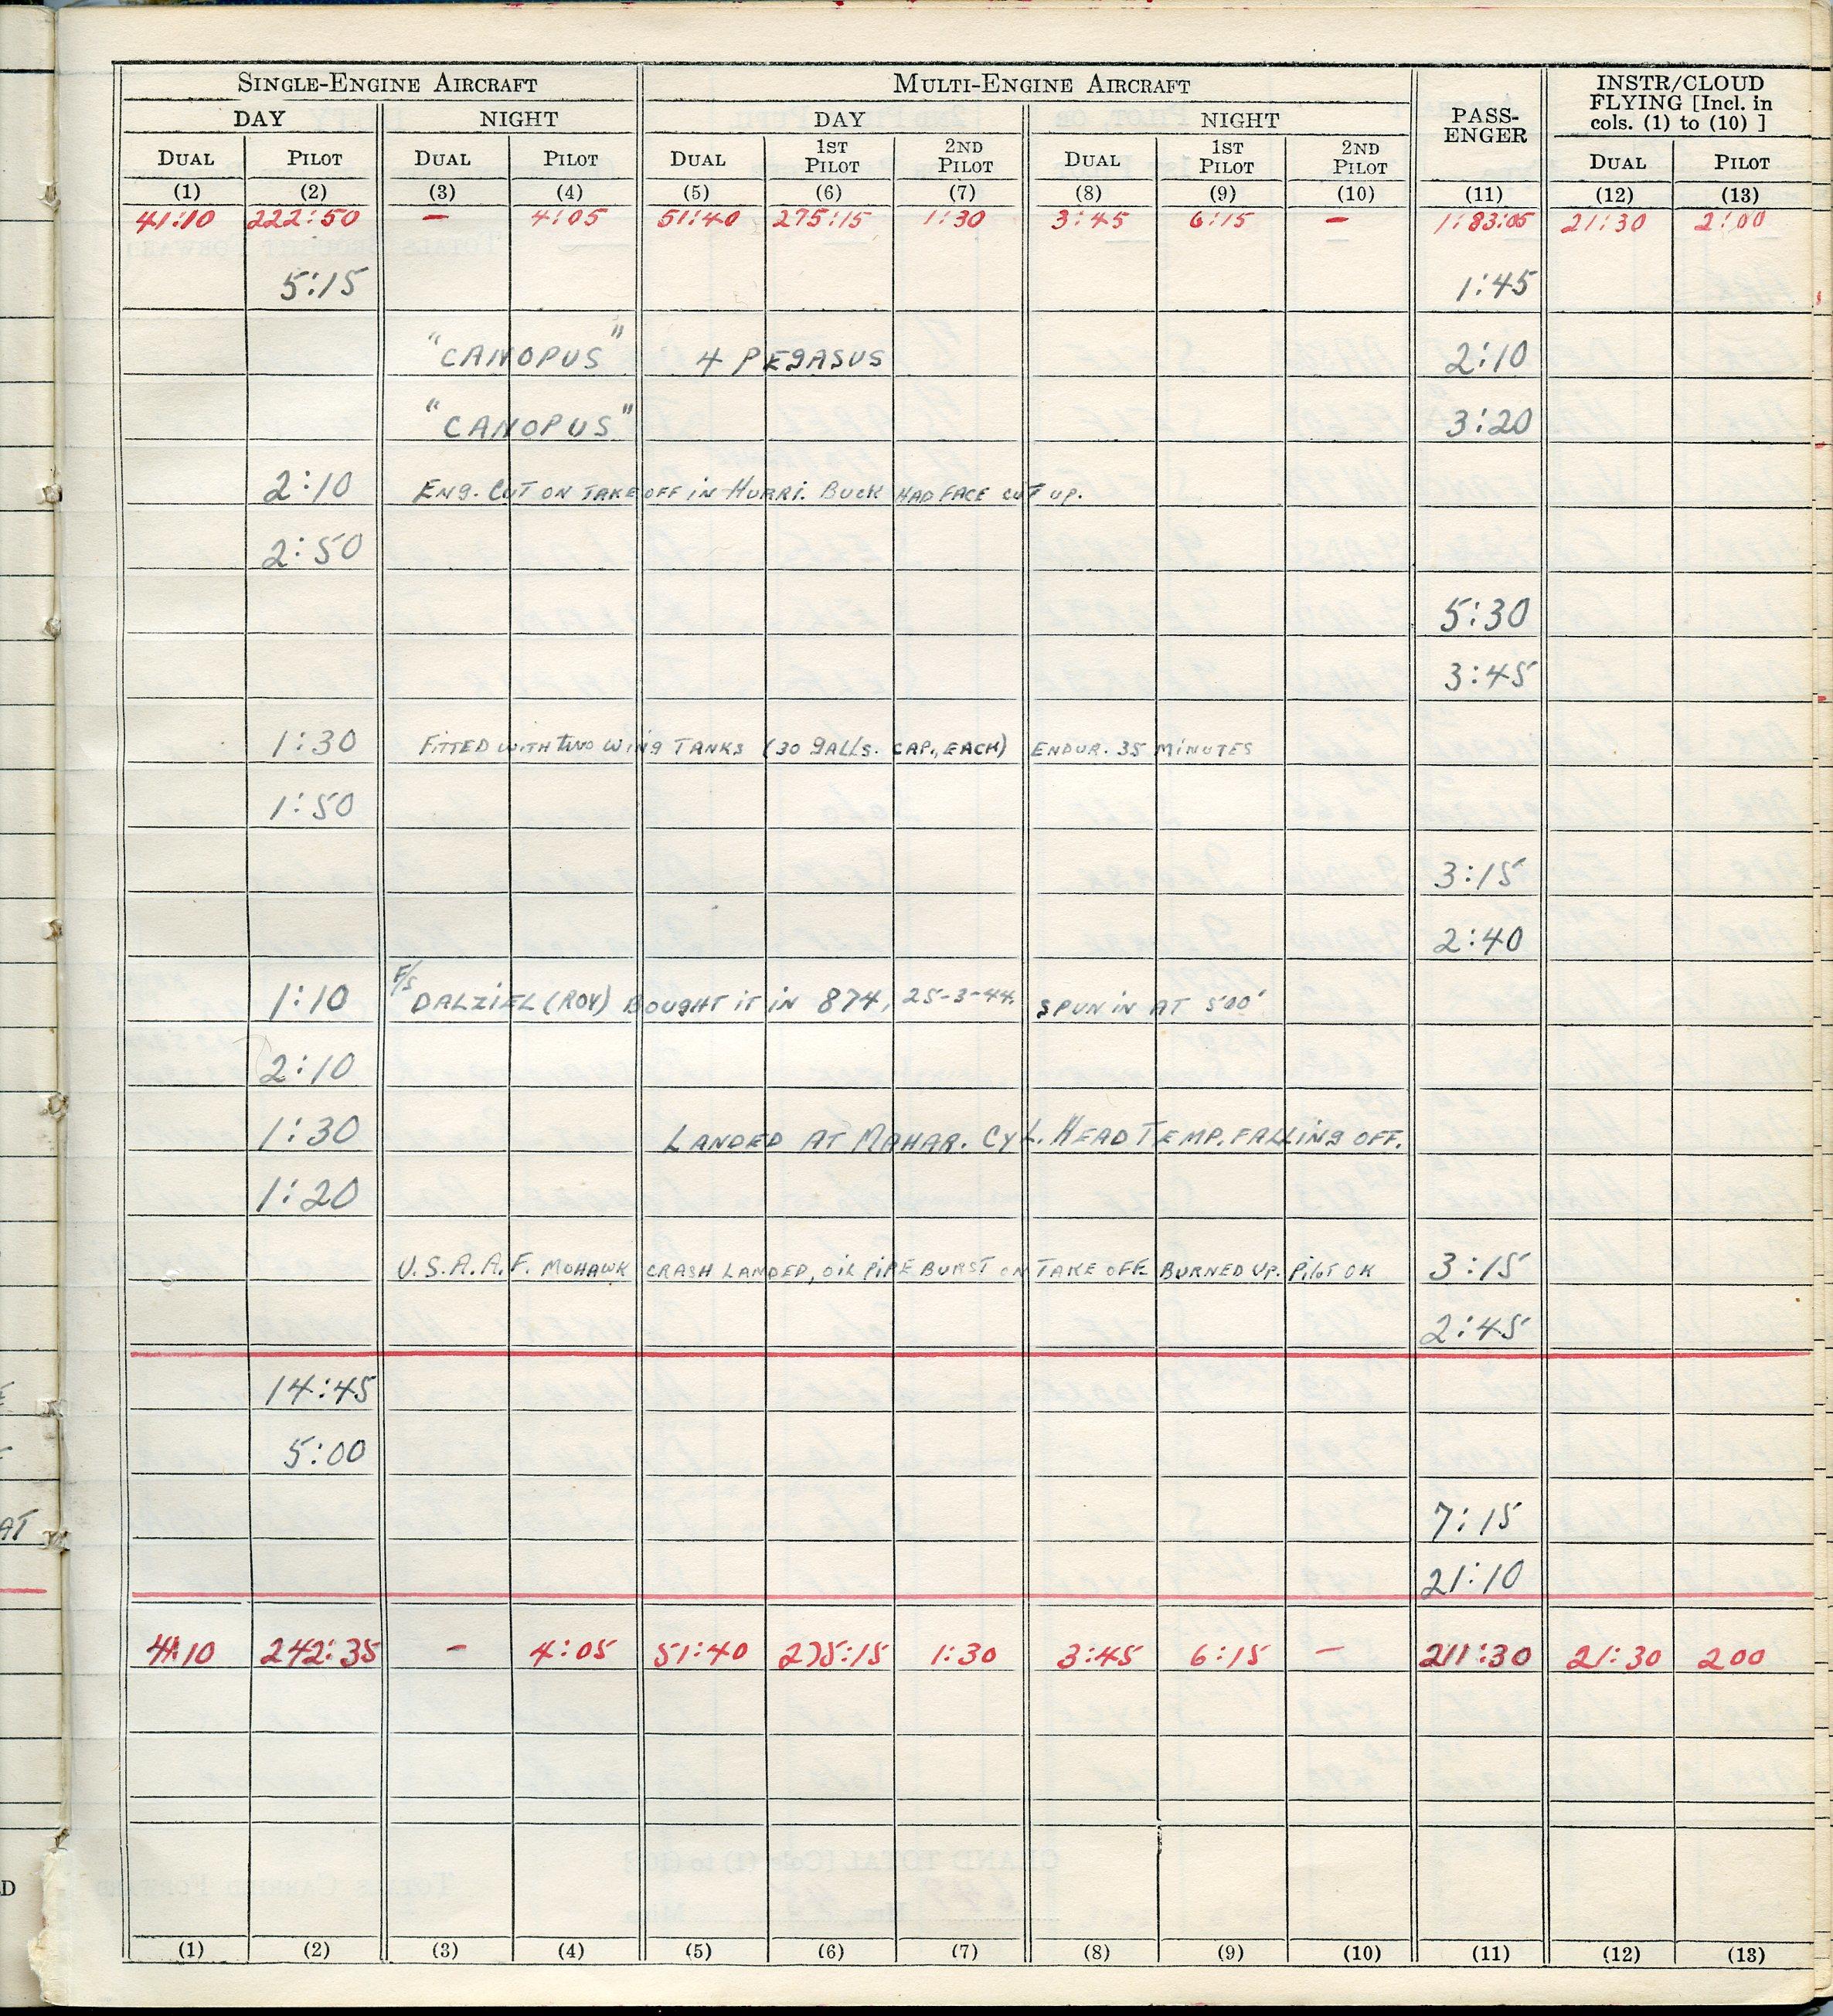 SINGLE-ENGINE AIRCRAFT MULTI-ENGINE AIRCRAFT PASS-ENGER INSTR/CLOUD FLYING [Incl. in cols. (1) to (10) ]
DAY NIGHT DAY NIGHT
DUAL PILOT DUAL PILOT DUAL 1ST PILOT 2ND PILOT DUAL 1ST PILOT 2ND PILOT DUAL PILOT
(1) (2) (3) (4) (5) (6) (7) (8) (9) (10) (11) (12) (13)
41:10 222:50 – 4:05 51:40 275:15 1:30 3:45 6:15 – 1:83:05 21:30 2:00
5:15 1:45
"CANOPUS" 4 PEGASUS 2:10
"CANOPUS" 3:20
2:10 ENG. CUT ON TAKE OFF IN HURRI. BUCK HAD FACE CUT UP.
2:50
5:30
3:45
1:30 FITTED WITH TWO WING TANKS (30 GALLS. CAP., EACH) ENDUR. 35 MINUTES
1:50
3:15
2:40
1:10 F/S DALZIEL (ROY) BOUGHT IT IN 874, 25-3-44. SPUN IN AT 500'
2:10
1:30 LANDED AT MAHAR. CYL. HEAD TEMP. FALLING OFF.
1:20
U.S.A.A.F. MOHAWK CRASH LANDED, OIL PIPE BURST ON TAKE OFF. BURNED UP. PILOT OK 3:15
2:45
14:45
5:00
7:15
AT
21:10
41:10 242:35 – 4:05 51:40 275:15 1:30 3:45 6:15 – 211:30 21:30 200
D
(1) (2) (3) (4) (5) (6) (7) (8) (9) (10) (11) (12) (13)